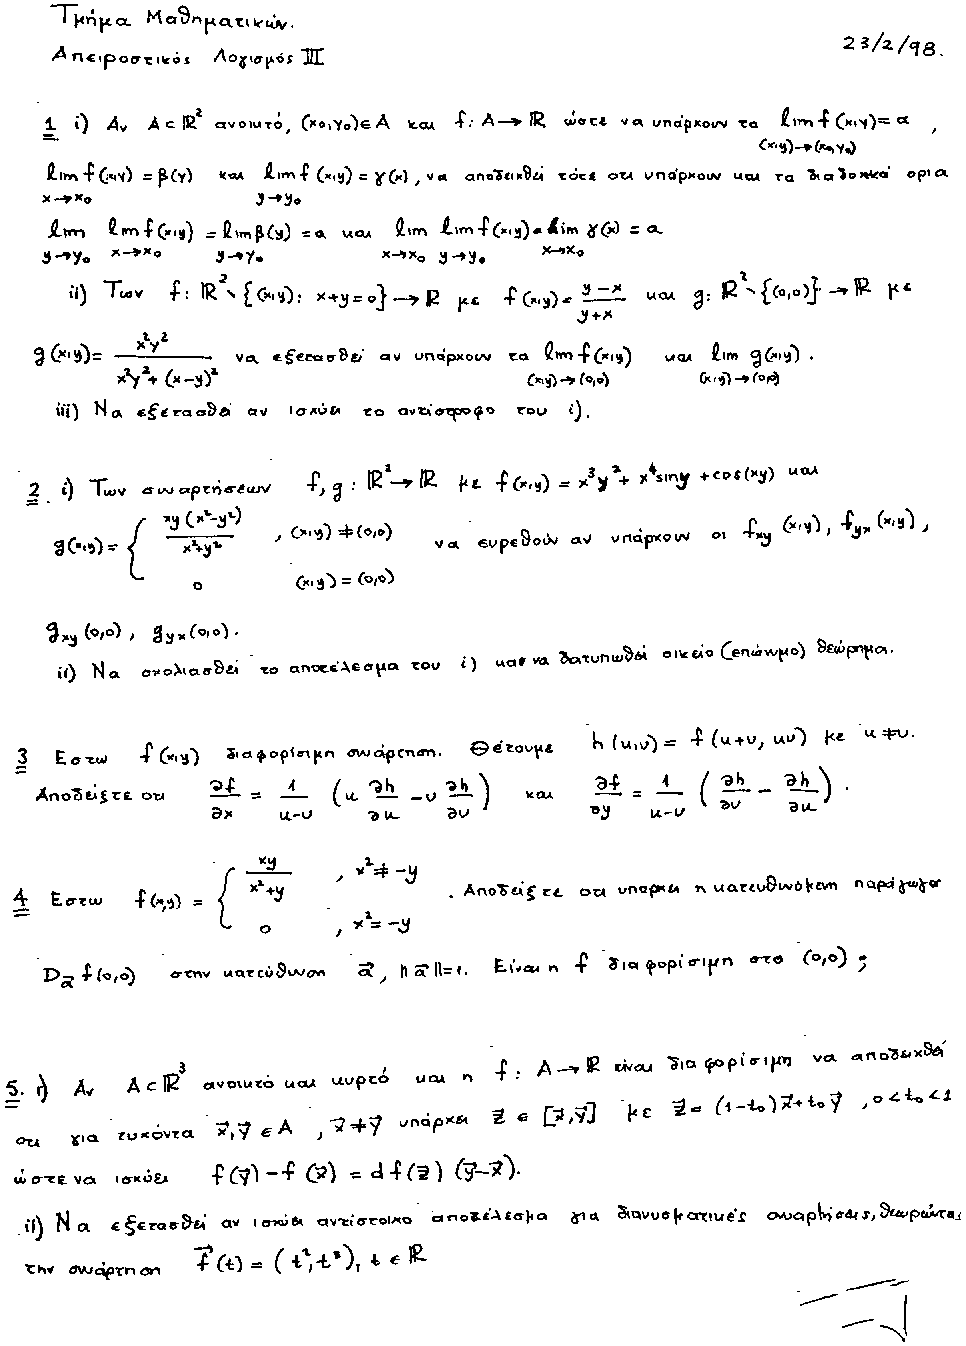 Τμήμα Μαθηματικών.
Απειροστικός Λογισμός III
23/2/98.
1 i) Αν A⊂ℝ² ανοικτό, (x₀,y₀)∈A και f: A→ℝ ώστε να υπάρχουν τα lim f(x,y)=α,
(x,y)→(x₀,y₀)
lim f(x,y) = β(y) και lim f(x,y) = γ(x), να αποδειχθεί τότε οτι υπάρχουν και τα διαδοχικά ορια
x→x₀ y→y₀
lim lim f(x,y) = lim β(y) = α και lim lim f(x,y) = lim γ(x) = α
y→y₀ x→x₀ y→y₀ x→x₀ y→y₀ x→x₀
ii) Των f: ℝ²∖{(x,y): x+y=0}→ℝ με f(x,y) = (y−x)/(y+x) και g: ℝ²∖{(0,0)}→ℝ με
g(x,y) = x²y²/(x²y²+(x−y)²) να εξετασθεί αν υπάρχουν τα lim f(x,y) και lim g(x,y).
(x,y)→(0,0) (x,y)→(0,0)
iii) Να εξετασθεί αν ισχύει το αντίστροφο του i).
2 i) Των συναρτήσεων f, g: ℝ²→ℝ με f(x,y) = x³y²+x⁴siny+cos(xy) και
g(x,y) = { xy(x²−y²)/(x²+y²) , (x,y)≠(0,0) να ευρεθούν αν υπάρχουν οι f_xy(x,y), f_yx(x,y),
0 (x,y)=(0,0)
g_xy(0,0), g_yx(0,0).
ii) Να σχολιασθεί το αποτέλεσμα του i) και να διατυπωθεί οικείο (επώνυμο) θεώρημα.
3 Εστω f(x,y) διαφορίσιμη συνάρτηση. Θέτουμε h(u,v) = f(u+v, uv) με u≠v.
Αποδείξτε οτι ∂f/∂x = 1/(u−v) (u ∂h/∂u − v ∂h/∂v) και ∂f/∂y = 1/(u−v) (∂h/∂v − ∂h/∂u).
4 Εστω f(x,y) = { xy/(x²+y) , x²≠−y . Αποδείξτε οτι υπαρχει η κατευθυνόμενη παράγωγος
0 , x²=−y
D_a⃗ f(0,0) στην κατεύθυνση a⃗, ||a⃗||=1. Είναι η f διαφορίσιμη στο (0,0);
5. i) Αν A⊂ℝ³ ανοικτό και κυρτό και η f: A→ℝ είναι διαφορίσιμη να αποδειχθεί
οτι για τυχόντα x⃗,y⃗∈A, x⃗≠y⃗ υπάρχει z⃗∈[x⃗,y⃗] με z⃗=(1−t₀)x⃗+t₀y⃗, 0<t₀<1
ώστε να ισχύει f(y⃗)−f(x⃗) = df(z⃗)(y⃗−x⃗).
ii) Να εξετασθεί αν ισχύει αντίστοιχο αποτέλεσμα για διανυσματικές συναρτήσεις, θεωρώντας
την συνάρτηση f⃗(t) = (t², t³), t∈ℝ